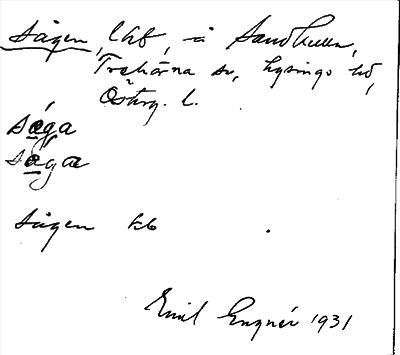 Sågen, lhf, å Sandkullen,
Trehörna sn, Lysings hd,
Österg. l.
såga
såga
Sågen kb
Emil Engnér 1931